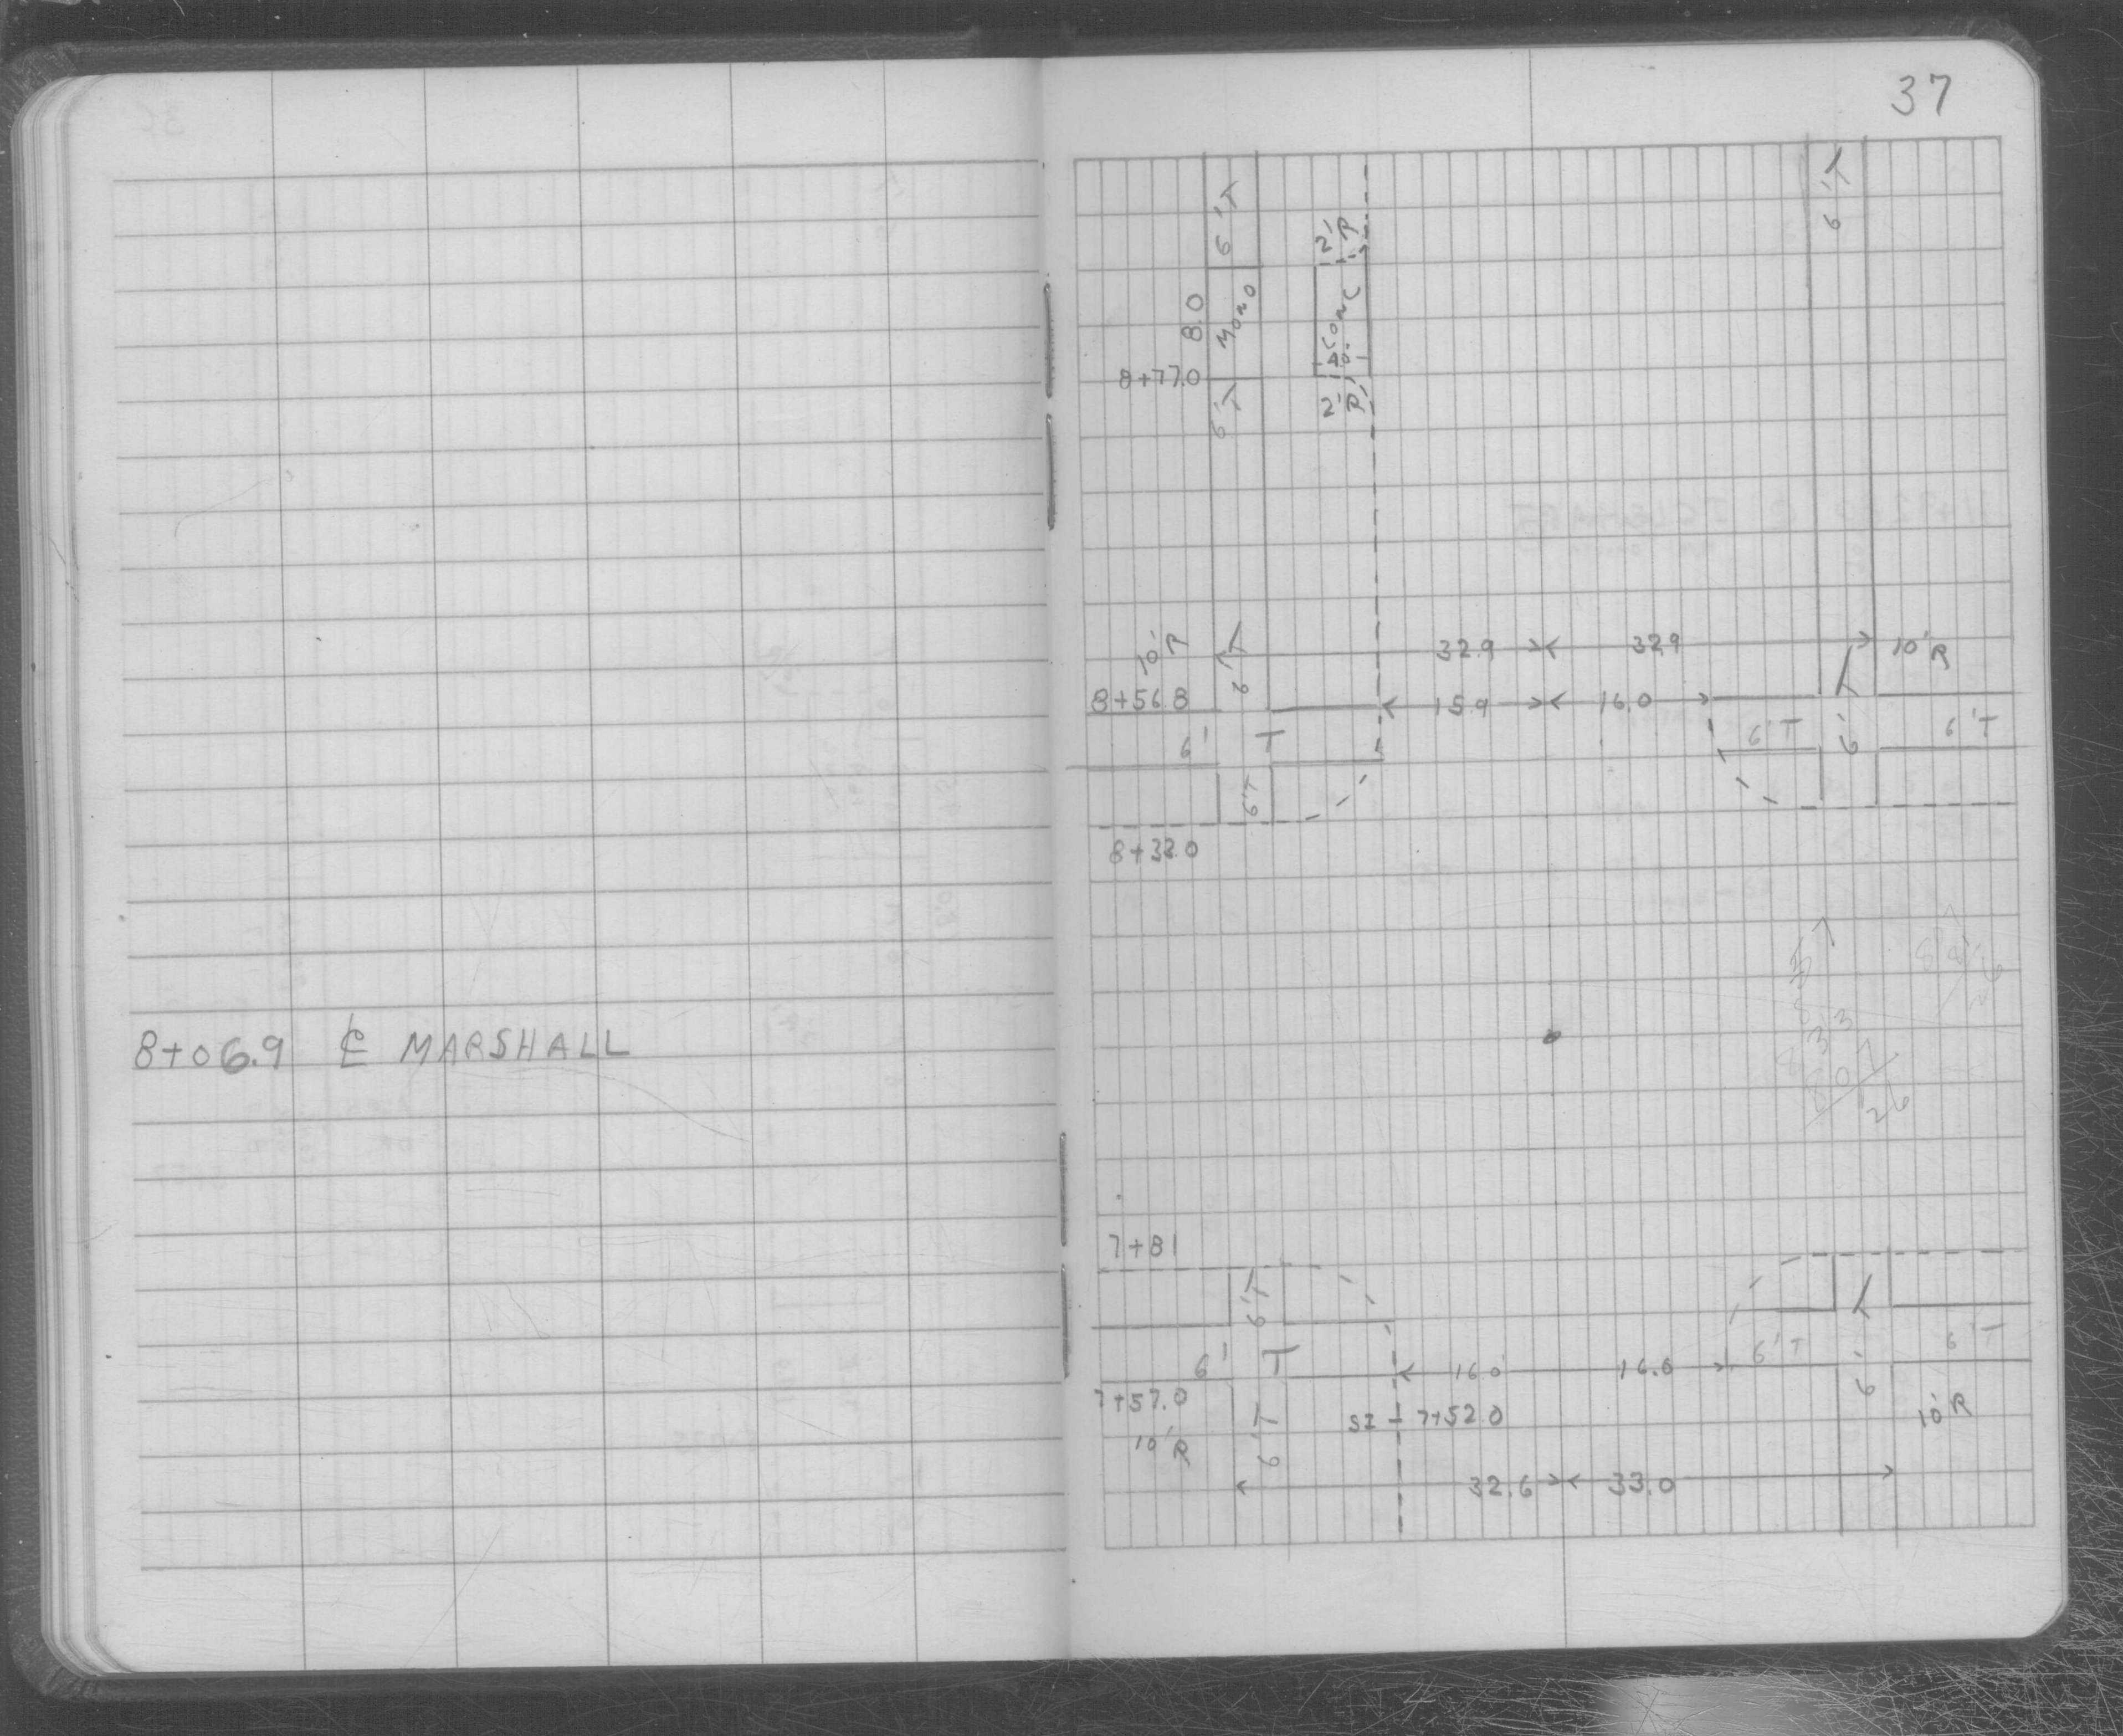 37
8+06.9 ℄ MARSHALL
6'T
6'T
2'
R
8.0
Mono
Conc
8+77.0
6'T
2'
R
10'R
6'T
32.9
32.9
10'R
8+56.8
15.9
16.0
6'
T
6'T
6'
6'T
6'T
8+33.0
833
807
26
7+81
6'T
6'
T
16.0
16.0
6'T
6'
6'T
7+57.0
SI - 7+52.0
10'R
6'T
10'R
32.6
33.0